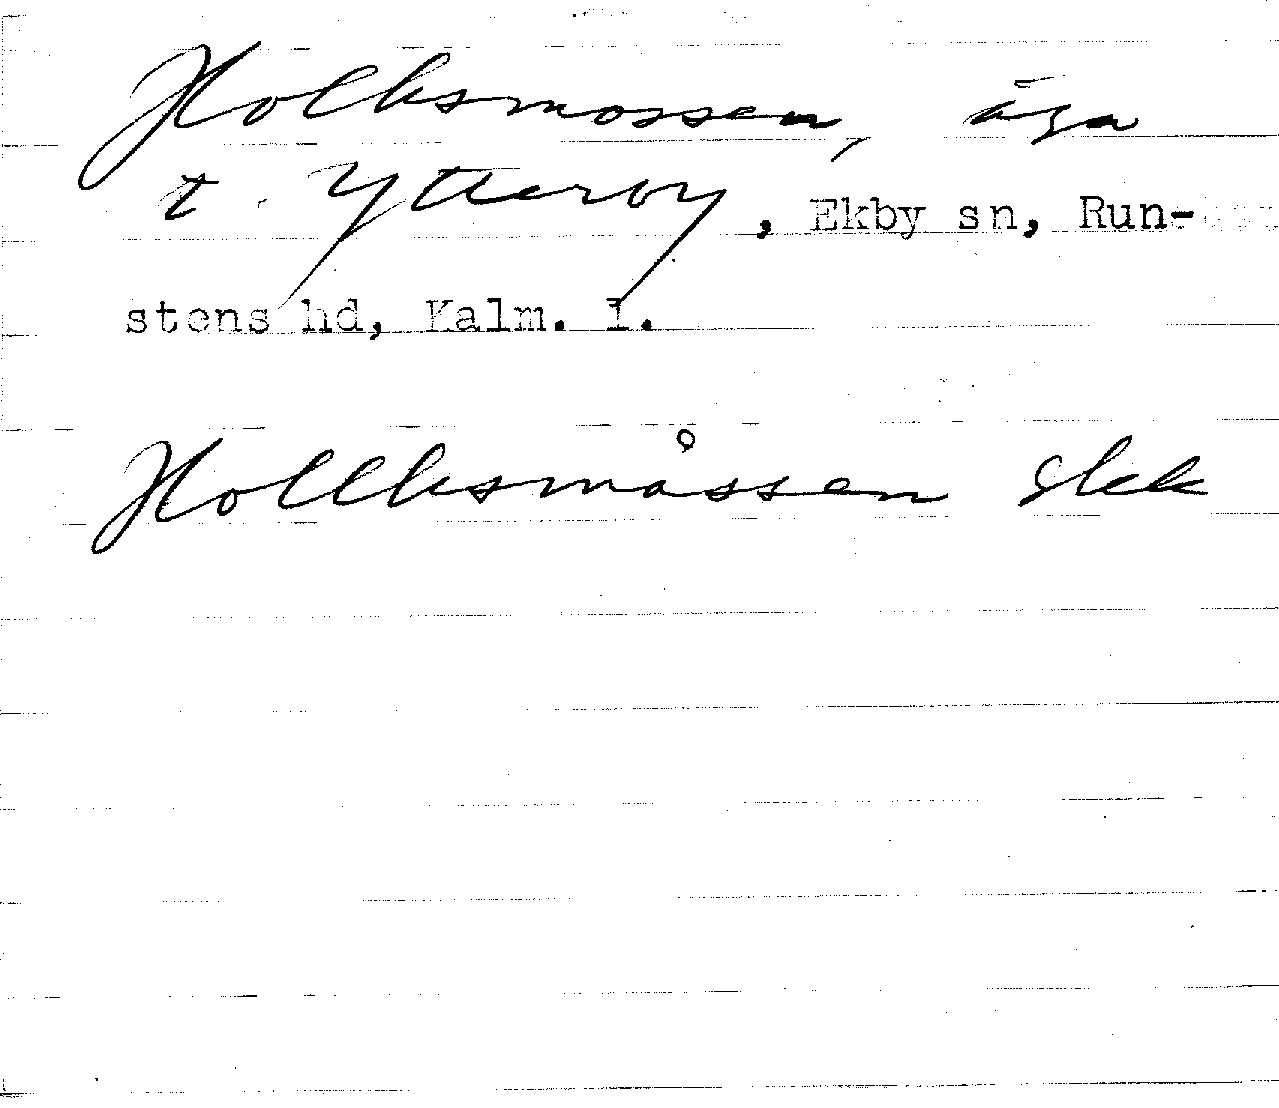 Holksmossen, äga
t. Ytterby, Ekby sn, Run-
stens hd, Kalm. l.
Hollksmåssen Ekk